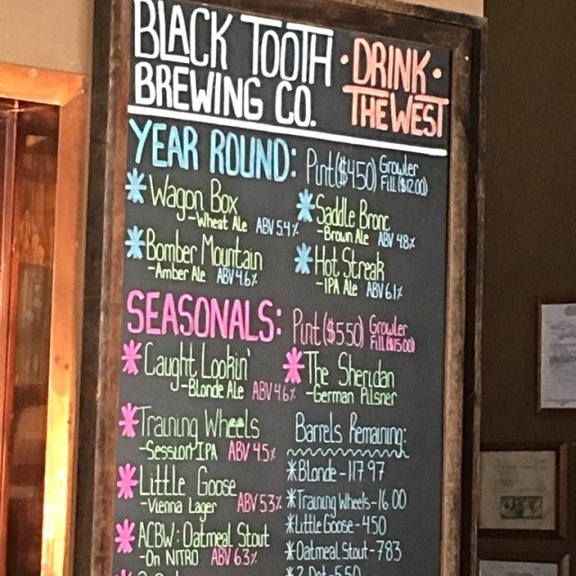 BLACK TOOTH
BREWING CO.
· DRINK ·
THE WEST
YEAR ROUND: Pint ($4.50) Growler
Fill ($12.00)
* Wagon Box
- Wheat Ale ABV 5.4%
* Saddle Bronc
- Brown Ale ABV 4.8%
* Bomber Mountain
- Amber Ale ABV 4.6%
* Hot Streak
- IPA Ale ABV 6.1%
SEASONALS: Pint ($5.50) Growler
Fill ($15.00)
* Caught Lookin'
- Blonde Ale ABV 4.6%
* The Sheridan
- German Pilsner
* Training Wheels
- Session IPA ABV 4.5%
* Little Goose
- Vienna Lager ABV 5.3%
* ACBW: Oatmeal Stout
- On NITRO ABV 6.3%
Barrels Remaining:
* Blonde - 117.97
* Training Wheels - 16.00
* Little Goose - 4.50
* Oatmeal Stout - 7.83